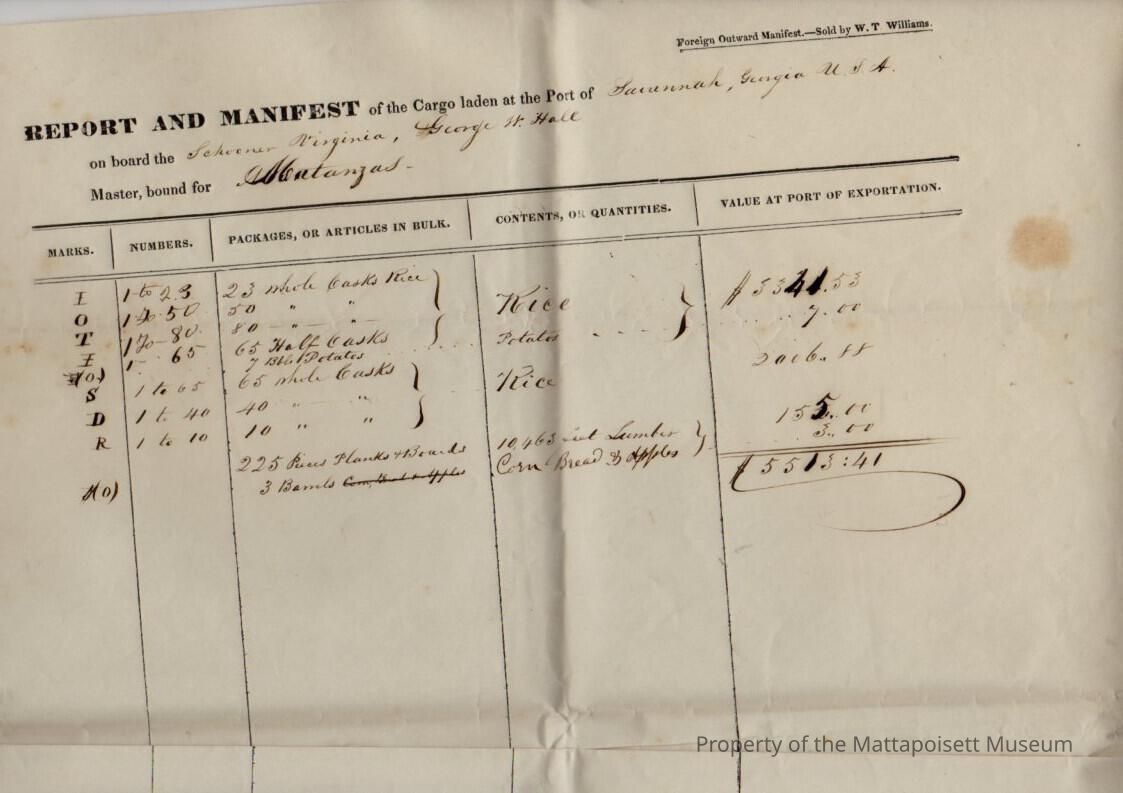 Foreign Outward Manifest.—Sold by W. T Williams.
REPORT AND MANIFEST of the Cargo laden at the Port of Savannah, Georgia U. S. A.
on board the Schooner Virginia, George W. Hall
Master, bound for Matanzas-
MARKS. NUMBERS. PACKAGES, OR ARTICLES IN BULK. CONTENTS, OR QUANTITIES. VALUE AT PORT OF EXPORTATION.
I 1 to 23 23 whole Casks Rice
O 1 to 50 50 " " Rice $ 3341.53
T 1 to 80 80 — " — " —
I 1 - 65 65 Half Casks Potatoes 7.00
7 Bbls Potatoes
S 1 to 65 65 whole Casks Rice 2006.. 88
D 1 to 40 40 " "
R 1 to 10 10 " "
225 Pieces Planks & Boards 10,463 feet Lumber 155.00
3 Barrels Corn, Bread & Apples Corn Bread & Apples 3.00
$ 5513:41
Property of the Mattapoisett Museum